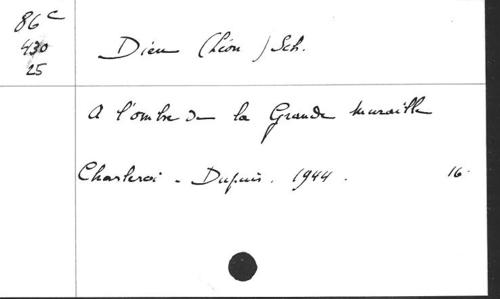 86 c
430
25
Dieu (Léon) Sch.
A l'ombre de la Grande Muraille
Charleroi - Dupuis. 1944. 16